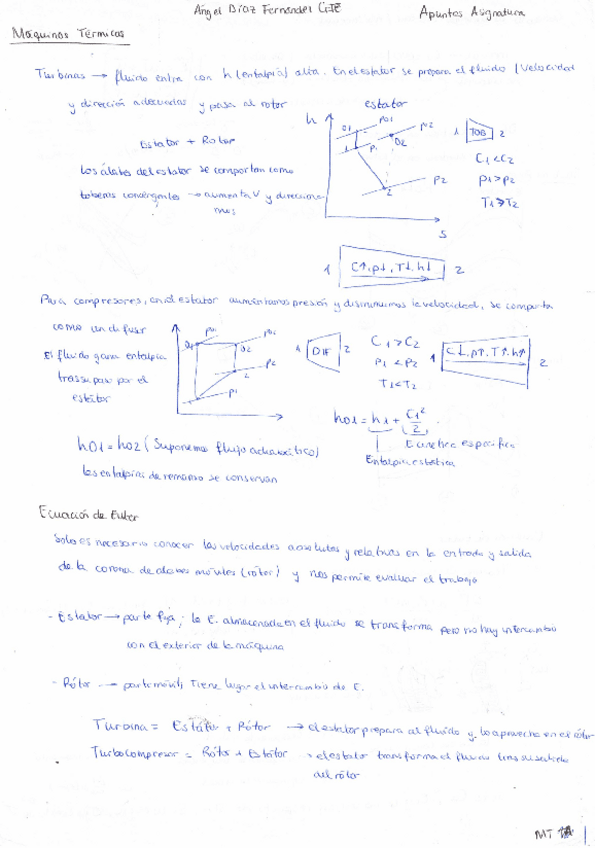 Ángel Díaz Fernández GITE
Apuntes Asignatura
Máquinas Térmicas
Turbinas → fluido entra con h (entalpía) alta. En el estator se prepara el fluido (velocidad
y dirección adecuadas y pasa al rotor
Estator + Rotor
Los álabes del estator se comportan como
toberas convergentes → aumenta V y direcciona
mos
estator
h
01
P01
P02
02
1
P1
P2
2
S
1 TOB 2
C1<C2
P1>P2
T1>T2
1 C↑, p↓, T↓, h↓ 2
Para compresores, en el estator aumentamos presión y disminuimos la velocidad, se comporta
como un difusor
El fluido gana entalpía
tras su paso por el
estátor
01
P01
P02
02
P2
2
P1
1 DIF 2
C1>C2
P1<P2
T1<T2
1 C↓, p↑, T↑, h↑ 2
h01 = h1 + C1²/2
E cinética específica
Entalpía estática
h01 = h02 (Suponemos flujo adiabático)
las entalpías de remanso se conservan
Ecuación de Euler
Solo es necesario conocer las velocidades absolutas y relativas en la entrada y salida
de la corona de álabes móviles (rótor) y nos permite evaluar el trabajo
- Estator → parte fija; la E. almacenada en el fluido se transforma pero no hay intercambio
con el exterior de la máquina
- Rótor → parte móvil; Tiene lugar el intercambio de E.
Turbina = Estátor + Rótor → el estator prepara al fluido y lo aprovecha en el rótor
Turbocompresor = Rótor + Estátor → el estator transforma el fluido tras su salida
del rótor
MT
1